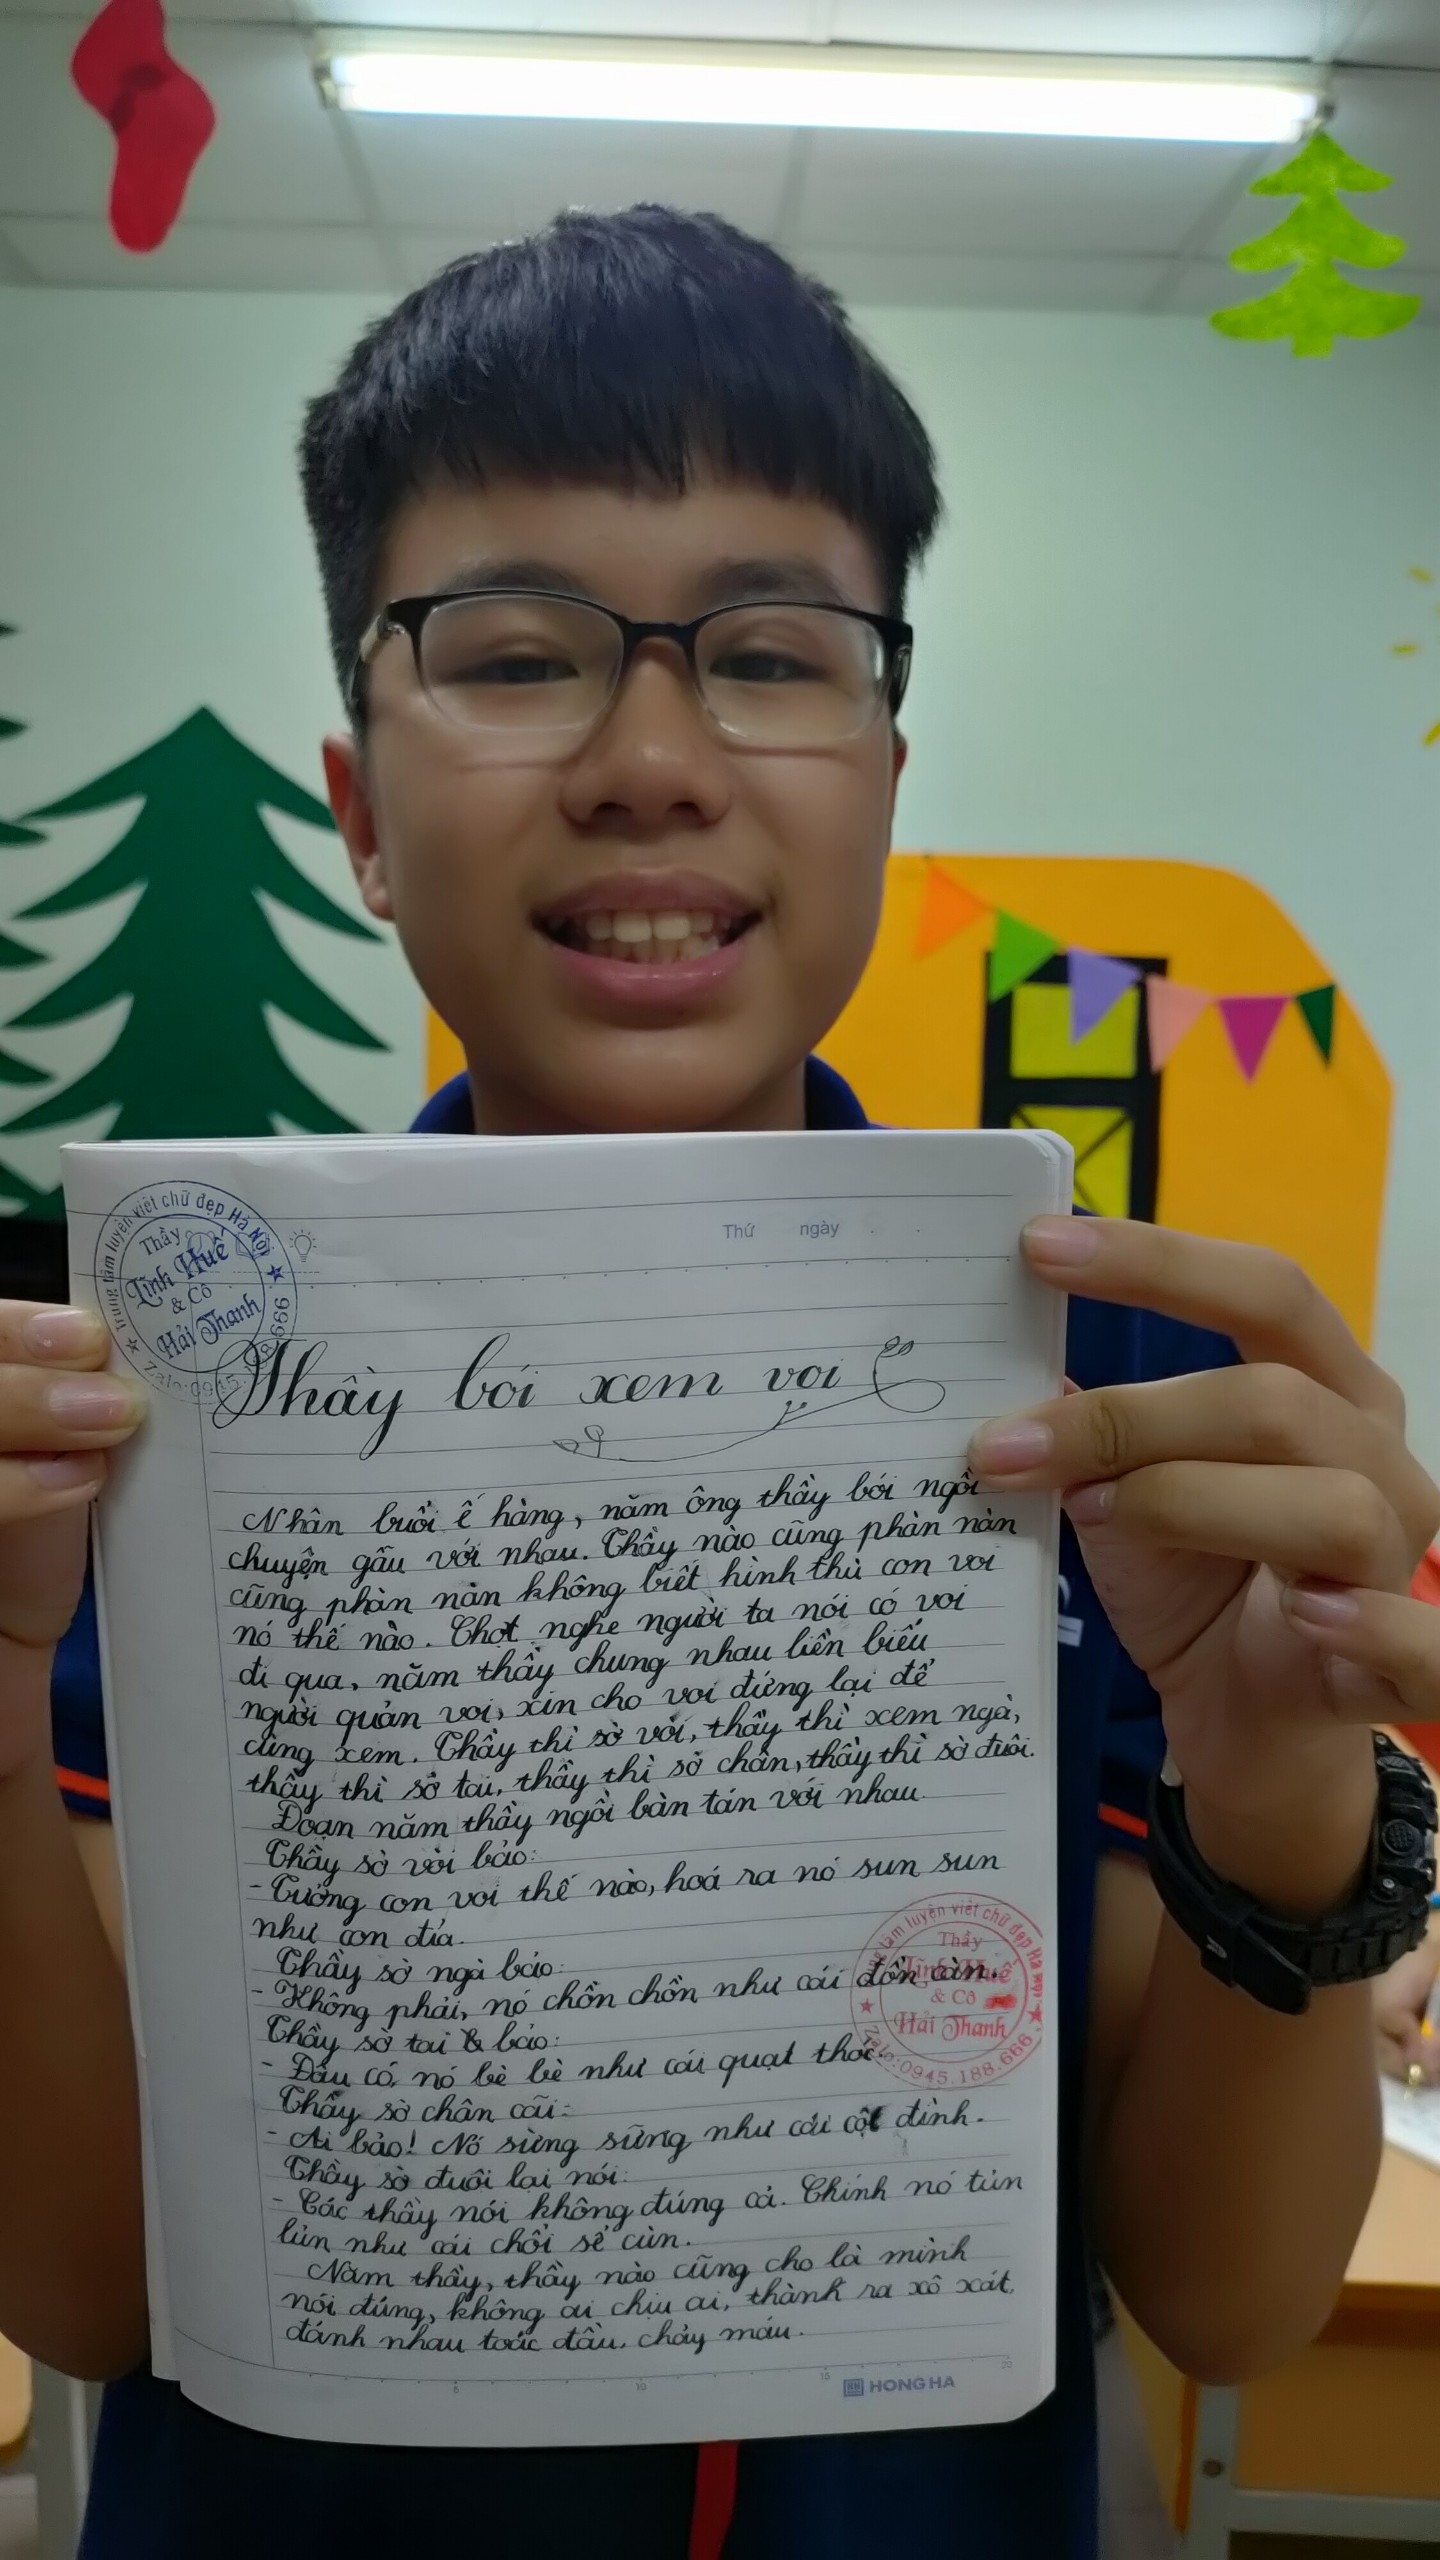 Trung tâm luyện viết chữ đẹp Hà Nội
Thầy
Lĩnh Huế
& Cô
Hải Thanh
Zalo:0945.188.666
Thứ ngày
Thầy bói xem voi
Nhân buổi ế hàng, năm ông thầy bói ngồi
chuyện gẫu với nhau. Thầy nào cũng phàn nàn
cũng phàn nàn không biết hình thù con voi
nó thế nào. Chợt nghe người ta nói có voi
đi qua, năm thầy chung nhau liền biếu
người quản voi, xin cho voi đứng lại để
cùng xem. Thầy thì sờ vòi, thầy thì xem ngà,
thầy thì sờ tai, thầy thì sờ chân, thầy thì sờ đuôi.
Đoạn năm thầy ngồi bàn tán với nhau.
Thầy sờ vòi bảo:
- Tưởng con voi thế nào, hoá ra nó sun sun
như con đỉa.
Thầy sờ ngà bảo:
- Không phải, nó chồn chồn như cái đòn càn.
Thầy sờ tai bảo:
- Đâu có, nó bè bè như cái quạt thóc
Thầy sờ chân cãi:
- Ai bảo! Nó sừng sững như cái cột đình.
Thầy sờ đuôi lại nói:
- Các thầy nói không đúng cả. Chính nó tủn
lủn như cái chổi sể cùn.
Năm thầy, thầy nào cũng cho là mình
nói đúng, không ai chịu ai, thành ra xô xát,
đánh nhau toác đầu, chảy máu.
Trung tâm luyện viết chữ đẹp Hà Nội
Thầy
Lĩnh Huế
& Cô
Hải Thanh
Zalo:0945.188.666
5 10 15 20
HH HONG HA